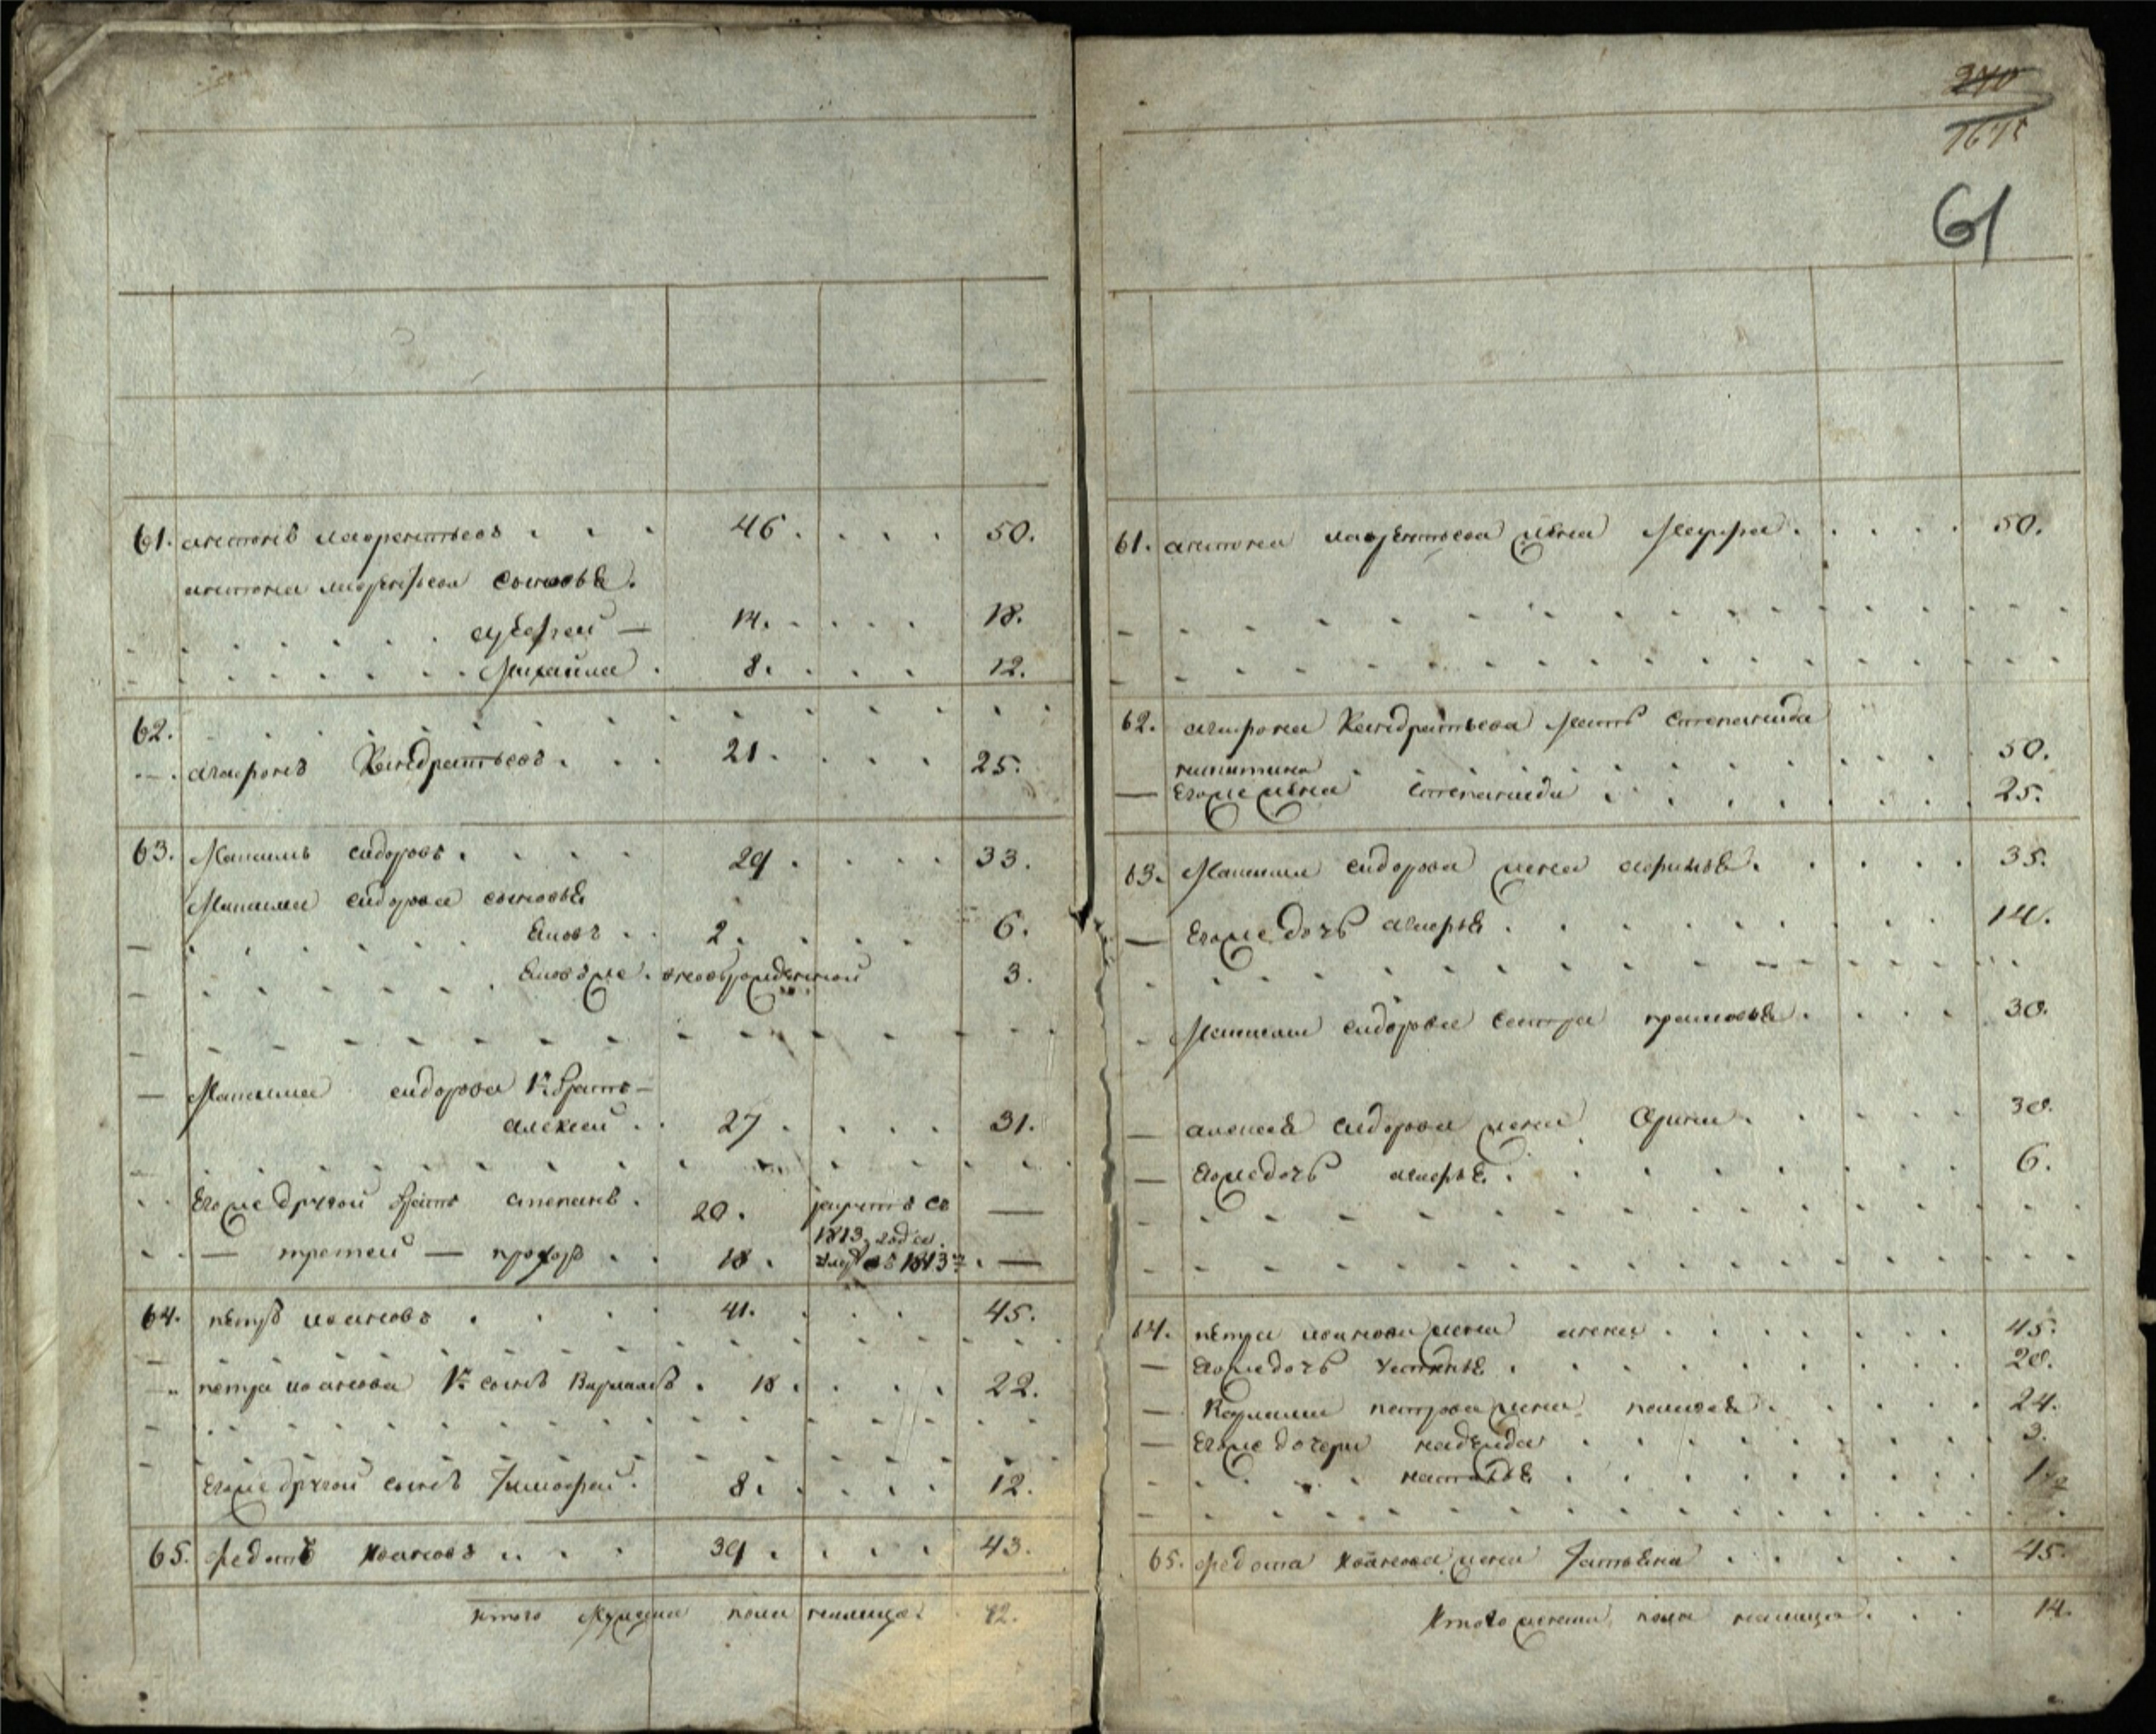 61. антонъ лаврентьевъ 46. 50.
антона лаврентьева сыновья.
андрей — 14. 18.
Михайла 8. 12.
62.
агафонъ Кандратьевъ 21. 25.
63. Максимъ сидоровъ 29. 33.
Максима сидорова сыновья
Яковъ 2. 6.
Яковъ же новорожденной 3.
Максима сидорова 1й братъ —
алексей 27. 31.
Егоже другой братъ степанъ 20. —
1813 года
— третей — прохоръ 18. 1813го —
64. петръ ивановъ 41. 45.
петра иванова 1й сынъ Варламъ 18. 22.
Егоже другой сынъ Тимофей 8. 12.
65. федотъ Ивановъ 39. 43.
итого мужеска пола налицо 12.
240
61
61. антона лаврентьева жена Марфа 50.
62. агафона Кандратьева мать степанида
никитина 50.
— Егоже жена степанида 25.
63. Максима сидорова жена 35.
— Егоже дочь марья 14.
Максима сидорова сестра прасковья 30.
— алексея сидорова жена Орина 30.
— Егоже дочь марья 6.
64. петра иванова жена анна 45.
— Егоже дочь устинья 20.
— Варлама петрова жена 24.
— Егоже дочери надежда 3.
настасья
65. федота Иванова жена Татьяна 45.
Итого женска пола налицо 14.